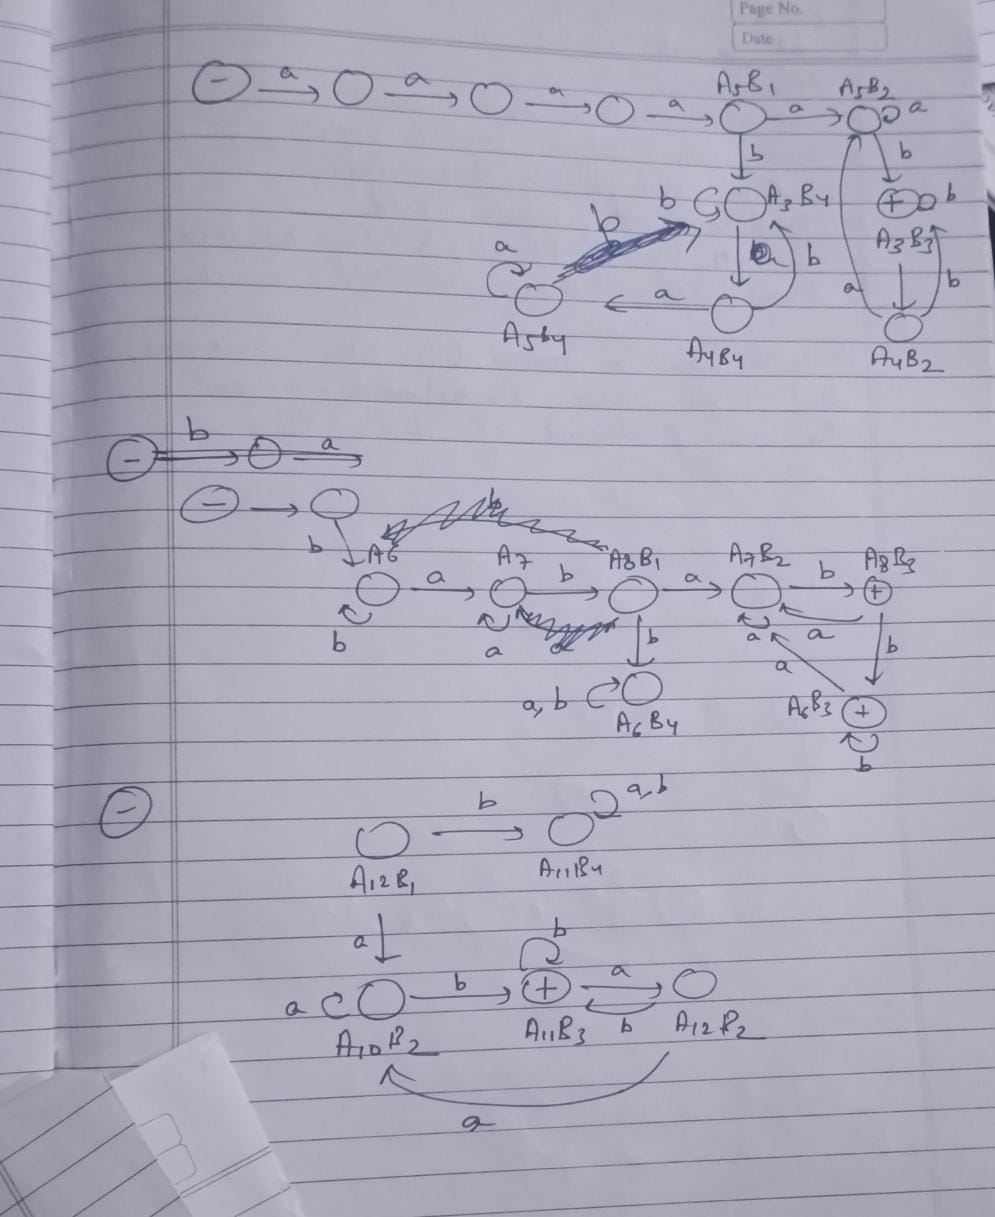 Page No.
Date :
- a a a a A5B1 a A5B2 a
b b
b A3B4 + b
b A3B3
a b a b
a
A5B4 A4B4 A4B2
- b a
-
b A6 A7 A8B1 A7B2 A8B3
a b a b +
b a b a a b
a
a, b A6B4 A6B3 +
b
- b a,b
A12B1 A11B4
a b
a b + a
A10B2 A11B3 b A12B2
a